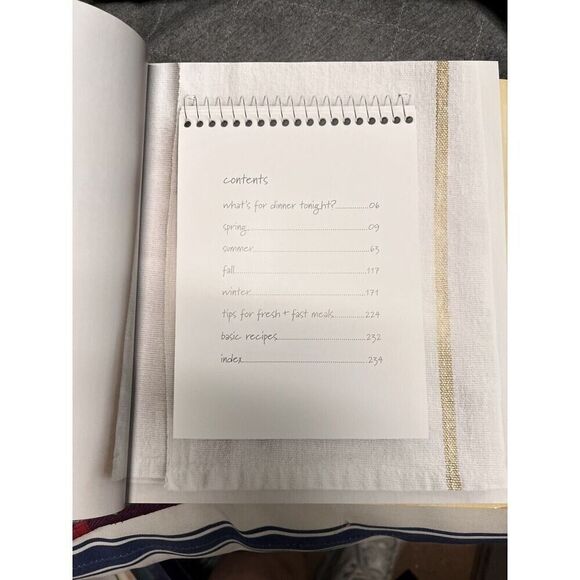 contents
what's for dinner tonight?..............06
spring..............09
summer..............63
fall..............117
winter..............171
tips for fresh + fast meals..............224
basic recipes..............232
index..............234